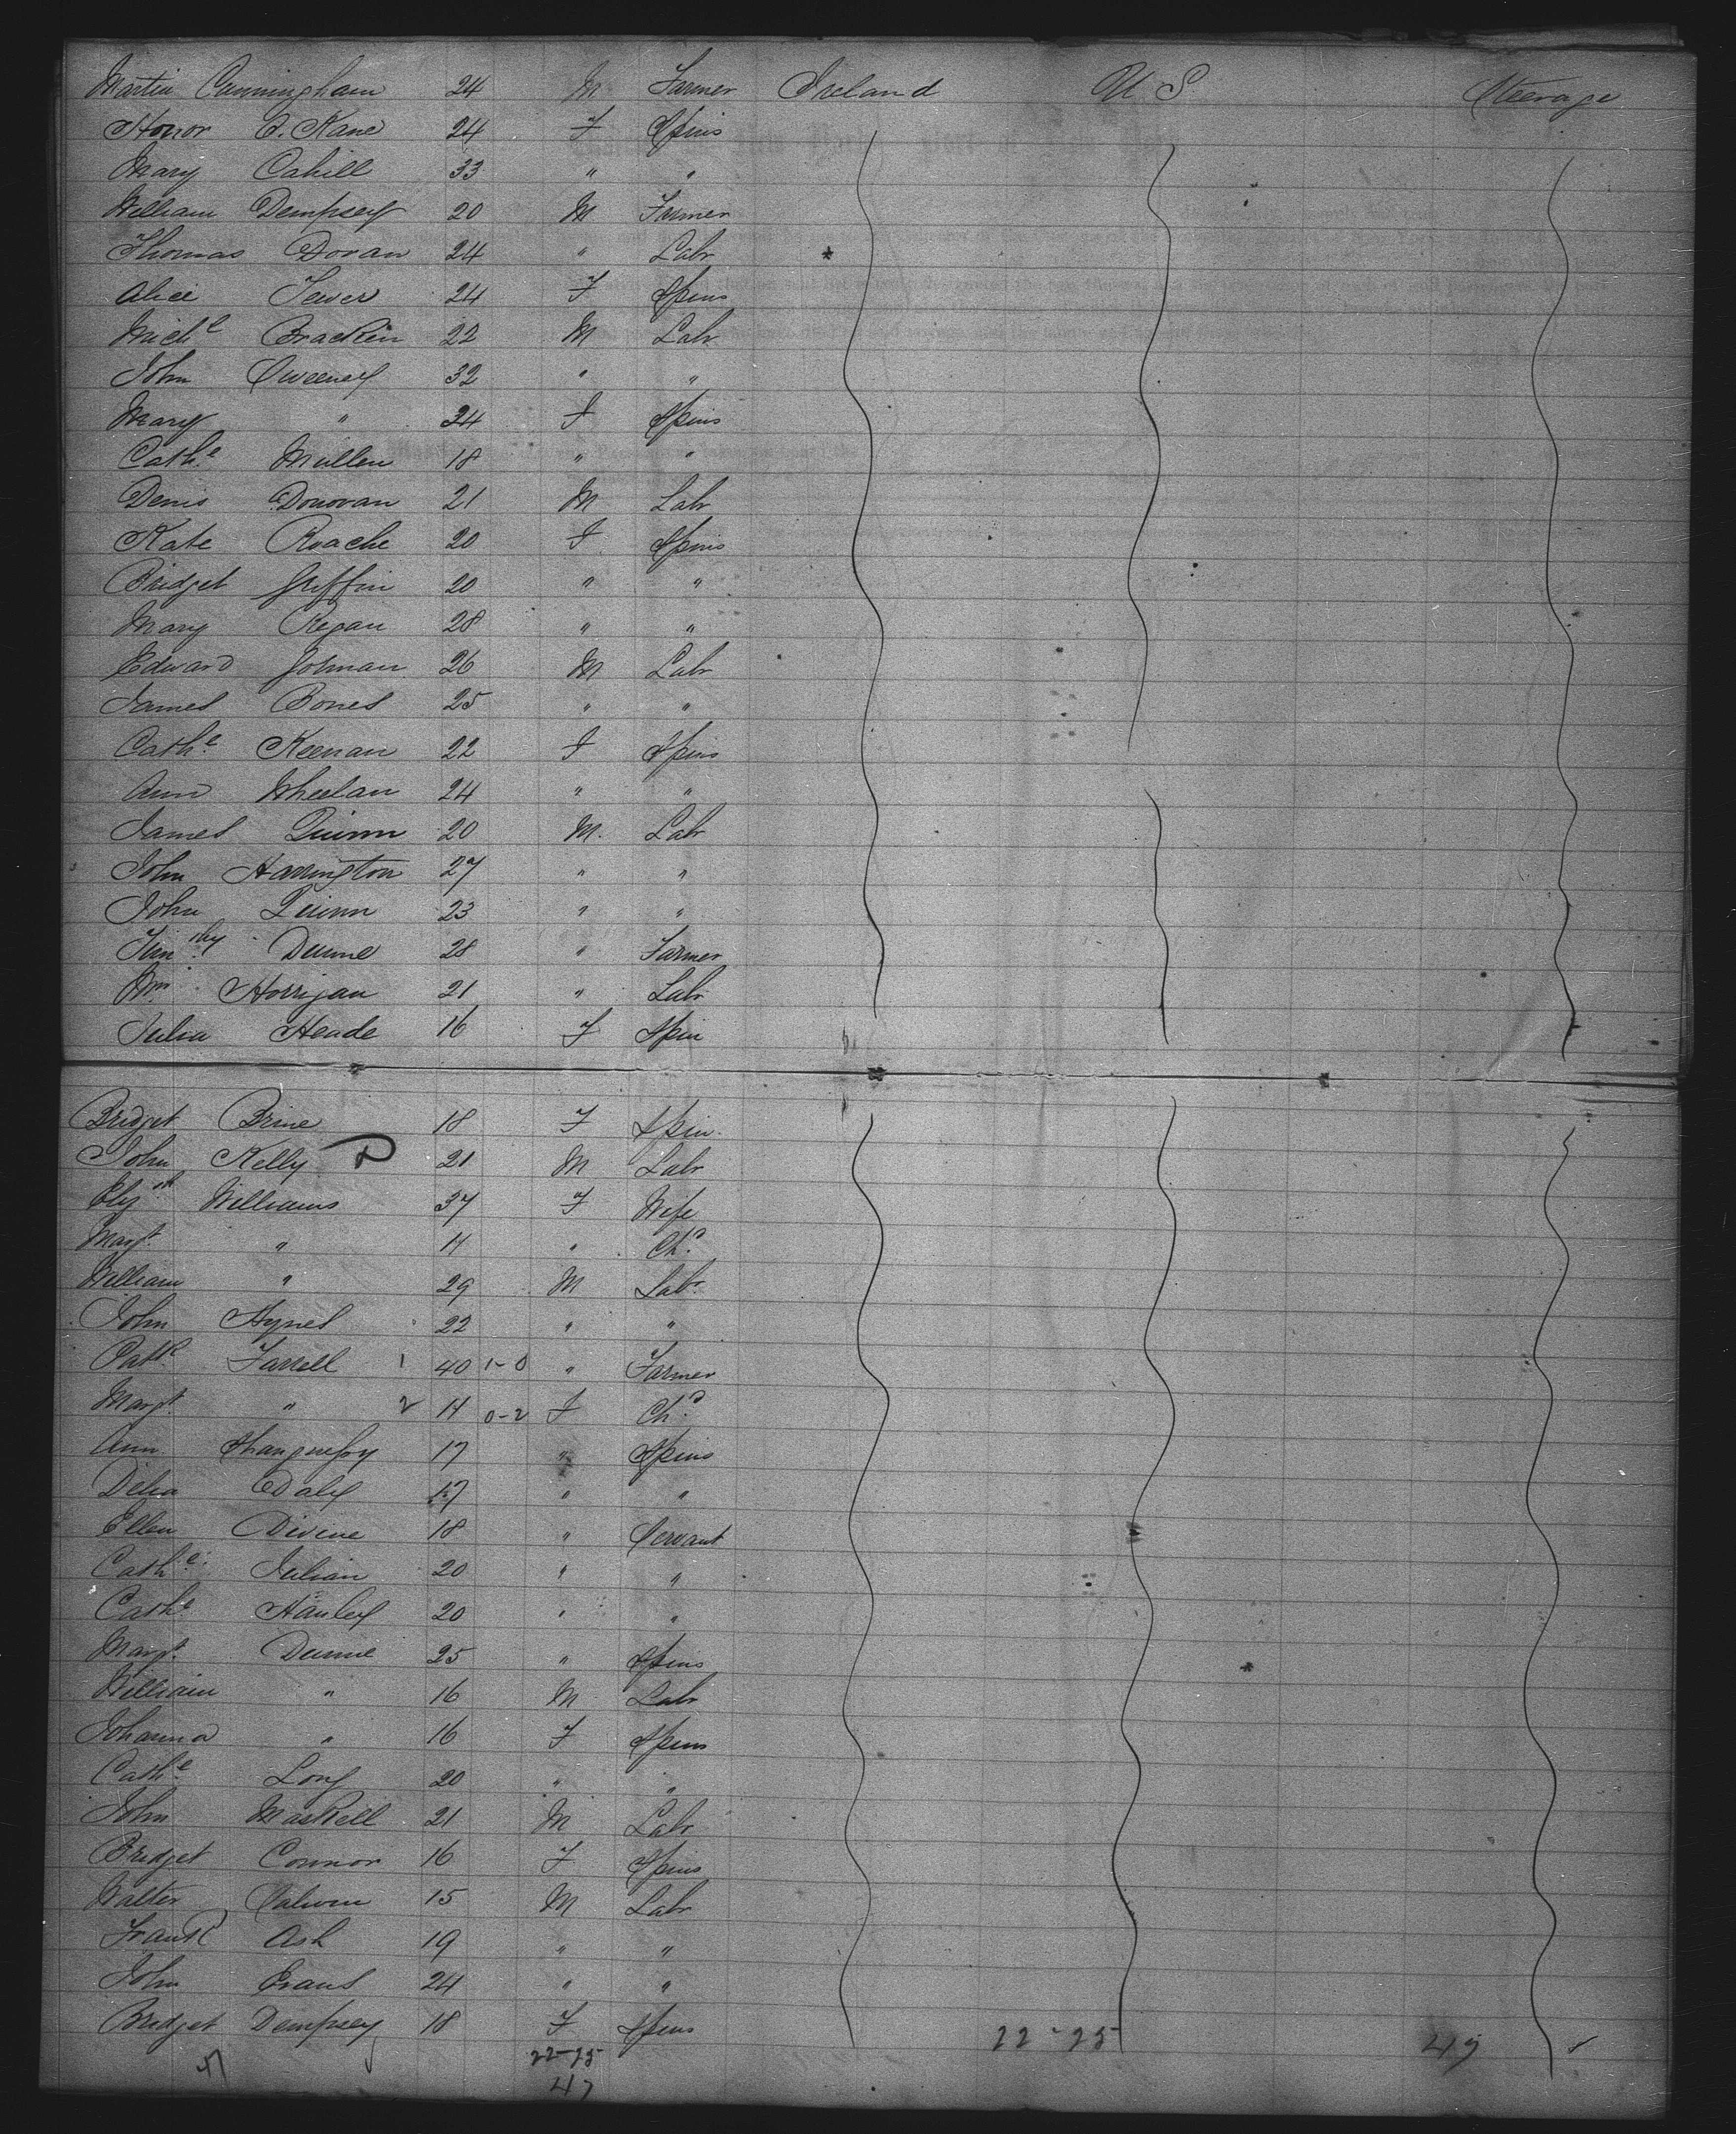 Martin Cunningham 24 M Farmer Ireland U S Steerage
Honor O. Kane 24 F Spins
Mary Cahill 33 " "
William Dempsey 20 M Farmer
Thomas Doran 24 " Labr
Alice 24 F Spins
Michl Bracken 22 M Labr
John Sweeney 32 " "
Mary " 24 F Spins
Cathe Mullen 18 " "
Denis Donovan 21 M Labr
Kate Roache 20 F Spins
Bridget Griffin 20 " "
Mary Regan 28 " "
Edward 26 M Labr
James Bones 25 " "
Cathe Keenan 22 F Spins
Ann Wheelan 24 " "
James Quinn 20 M. Labr
John Harrington 27 " "
John Quinn 23 " "
Timthy Dunne 28 " Farmer
Wm Horrigan 21 " Labr
Julia Heade 16 F Spin
Bridget Brine 18 F Spin.
John Kelly 21 M Labr
Elizth Williams 37 F Wife
Margt " 11 " Chd
William " 29 M Labr
John Hynes 22 " "
Patk Farrell 1 40 1-0 " Farmer
Margt " 2 11 0-2 F Chd
Ann 17 " Spins
Delia Daly 17 " "
Ellen Divine 18 " Servant
Cathe Julian 20 " "
Cathe Hanley 20 " "
Margt Dunne 25 " Spins
William " 16 M Labr
Johanna " 16 F Spins
Cathe Long 20 " "
John Maskell 21 M Labr
Bridget Connor 16 F Spins
Walter 15 M Labr
Frank Ash 19 " "
John Evans 24 " "
Bridget Dempsey 18 F Spins
22-25 22-25 47
47 47